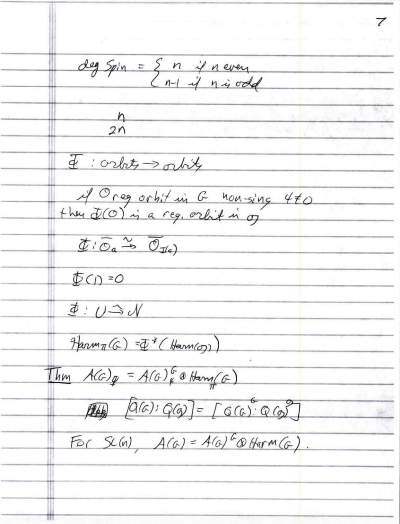 7
deg Spin = { n if n even
{ n-1 if n is odd
n
2n
Φ : orbits → orbits
if O reg orbit in G non-sing Ψ≠0
then Φ(O) is a reg. orbit in g
Φ : Ō_a ≃→ Ō_Φ(a)
Φ(1) = 0
Φ : U ≃→ N
Harm_π(G) = Φ*(Harm(g))
Thm A(G)_Ψ = A(G)_Ψ^G ⊗ Harm_π(G)
[Q(G) : Q(g)] = [Q(G)^G : Q(g)^g]
For SL(n), A(G) = A(G)^G ⊗ Harm(G).